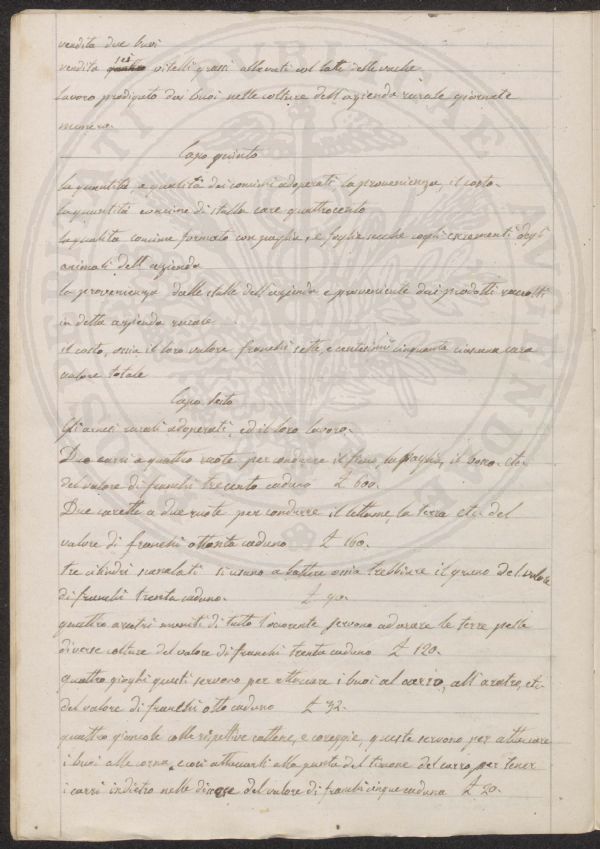 vendita due buoi
vendita sei vitelli grassi allevati col latte delle vache
lavoro prodigato dai buoi nelle colture dell'azienda rurale giornate
numero.
Capo quinto
la quantità e qualità dei concimi adoperati la provenienza, il costo.
la quantità concime di stalla care quattrocento
la qualità concime formato con paglie, e foglie secche cogli escrementi degli
animali dell'azienda
la provenienza dalle stalle dell'azienda e proveniente dai prodotti raccolti
in detta azienda rurale
il costo, ossia il loro valore franchi sette, e centesimi cinquanta ciascuna cara
valore totale
Capo sesto
Gli arnesi rurali adoperati, ed il loro lavoro.
Due carri a quattro ruote per condurre il fieno, la paglia, il etc.
del valore di franchi trecento caduno £ 600.
Due carette a due ruote per condurre il lettame, la terra etc. del
valore di franchi ottanta caduno £ 160.
tre cilindri scanalati si usano a battere ossia trebbiare il grano del valore
di franchi trenta caduno. £ 90.
quattro aratri muniti di tutto l'occorente servono ad arare le terre pelle
diverse colture del valore di franchi trenta caduno £ 120.
quattro gioghi questi servono per attaccare i buoi al carro, all'aratro, etc.
del valore di franchi otto caduno £ 32.
quattro giuncole colle rispettive cattene, e coreggie, queste servono per attaccare
i buoi alle corna, e così attaccarli alla punta del timone del carro per tener
i carri indietro nelle discese del valore di franchi cinque caduna £ 20.